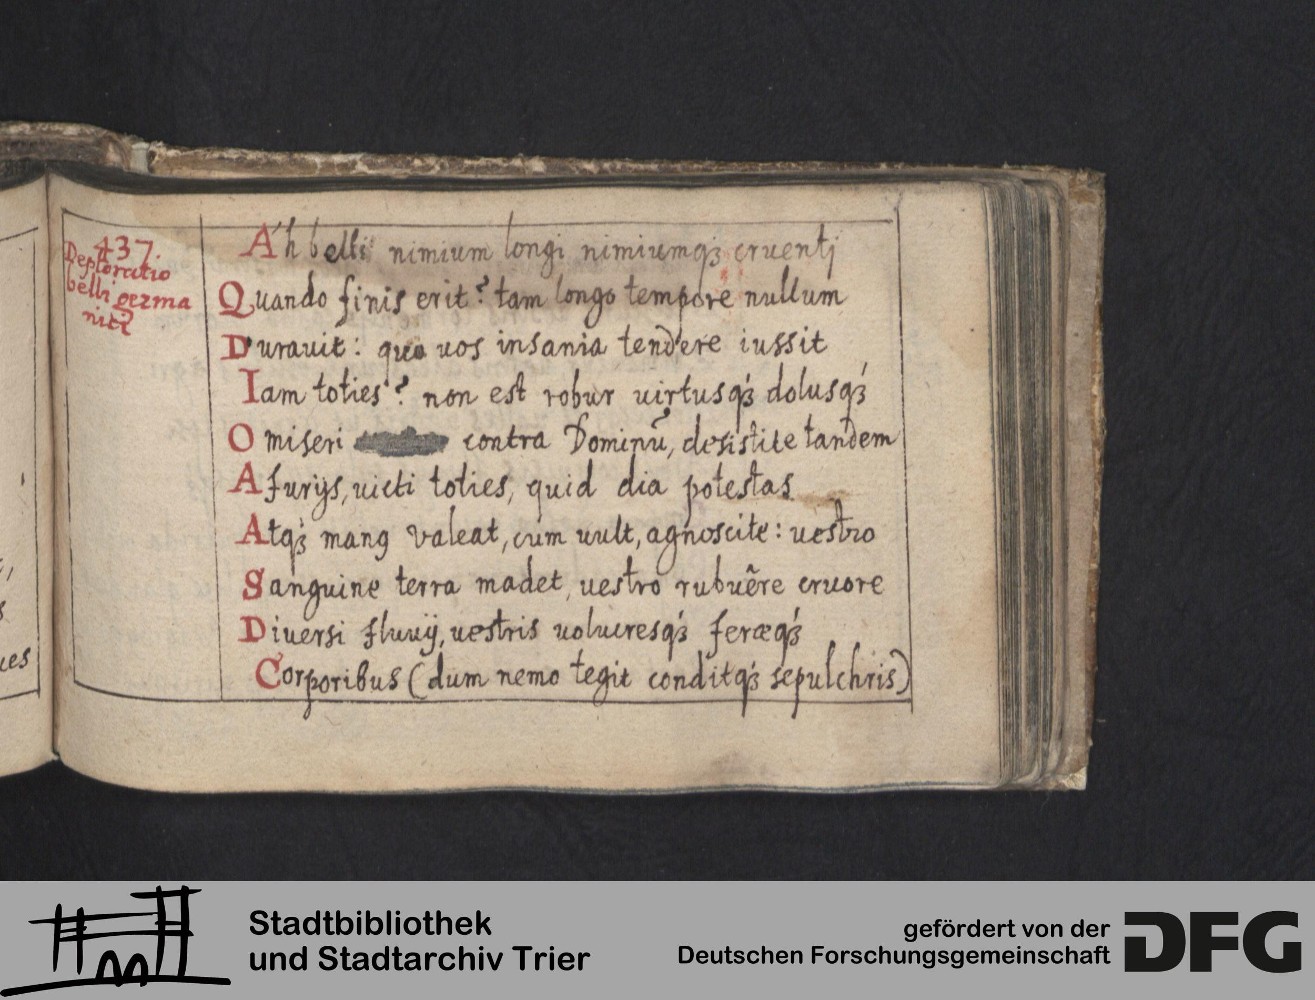 437.
Deploratio
belli germa
nici
Ah belli nimium longi nimiumq́ȝ cruentj
Quando finis erit? tam longo tempore nullum
Durauit: quo uos insania tendere iussit
Iam toties? non est robur uirtusq́ȝ dolusq́ȝ
O miseri contra Dominū, desistite tandem
A furijs, uicti toties, quid dia potestas
Atq́ȝ manꝯ valeat, cùm uult, agnoscite: uestro
Sanguine terra madet, uestro rubuêre cruore
Diuersi fluuij, uestris uolucresq́ȝ feræq́ȝ
Corporibus (dum nemo tegit conditq́ȝ sepulchris)
ues
Stadtbibliothek
und Stadtarchiv Trier
gefördert von der
Deutschen Forschungsgemeinschaft
DFG